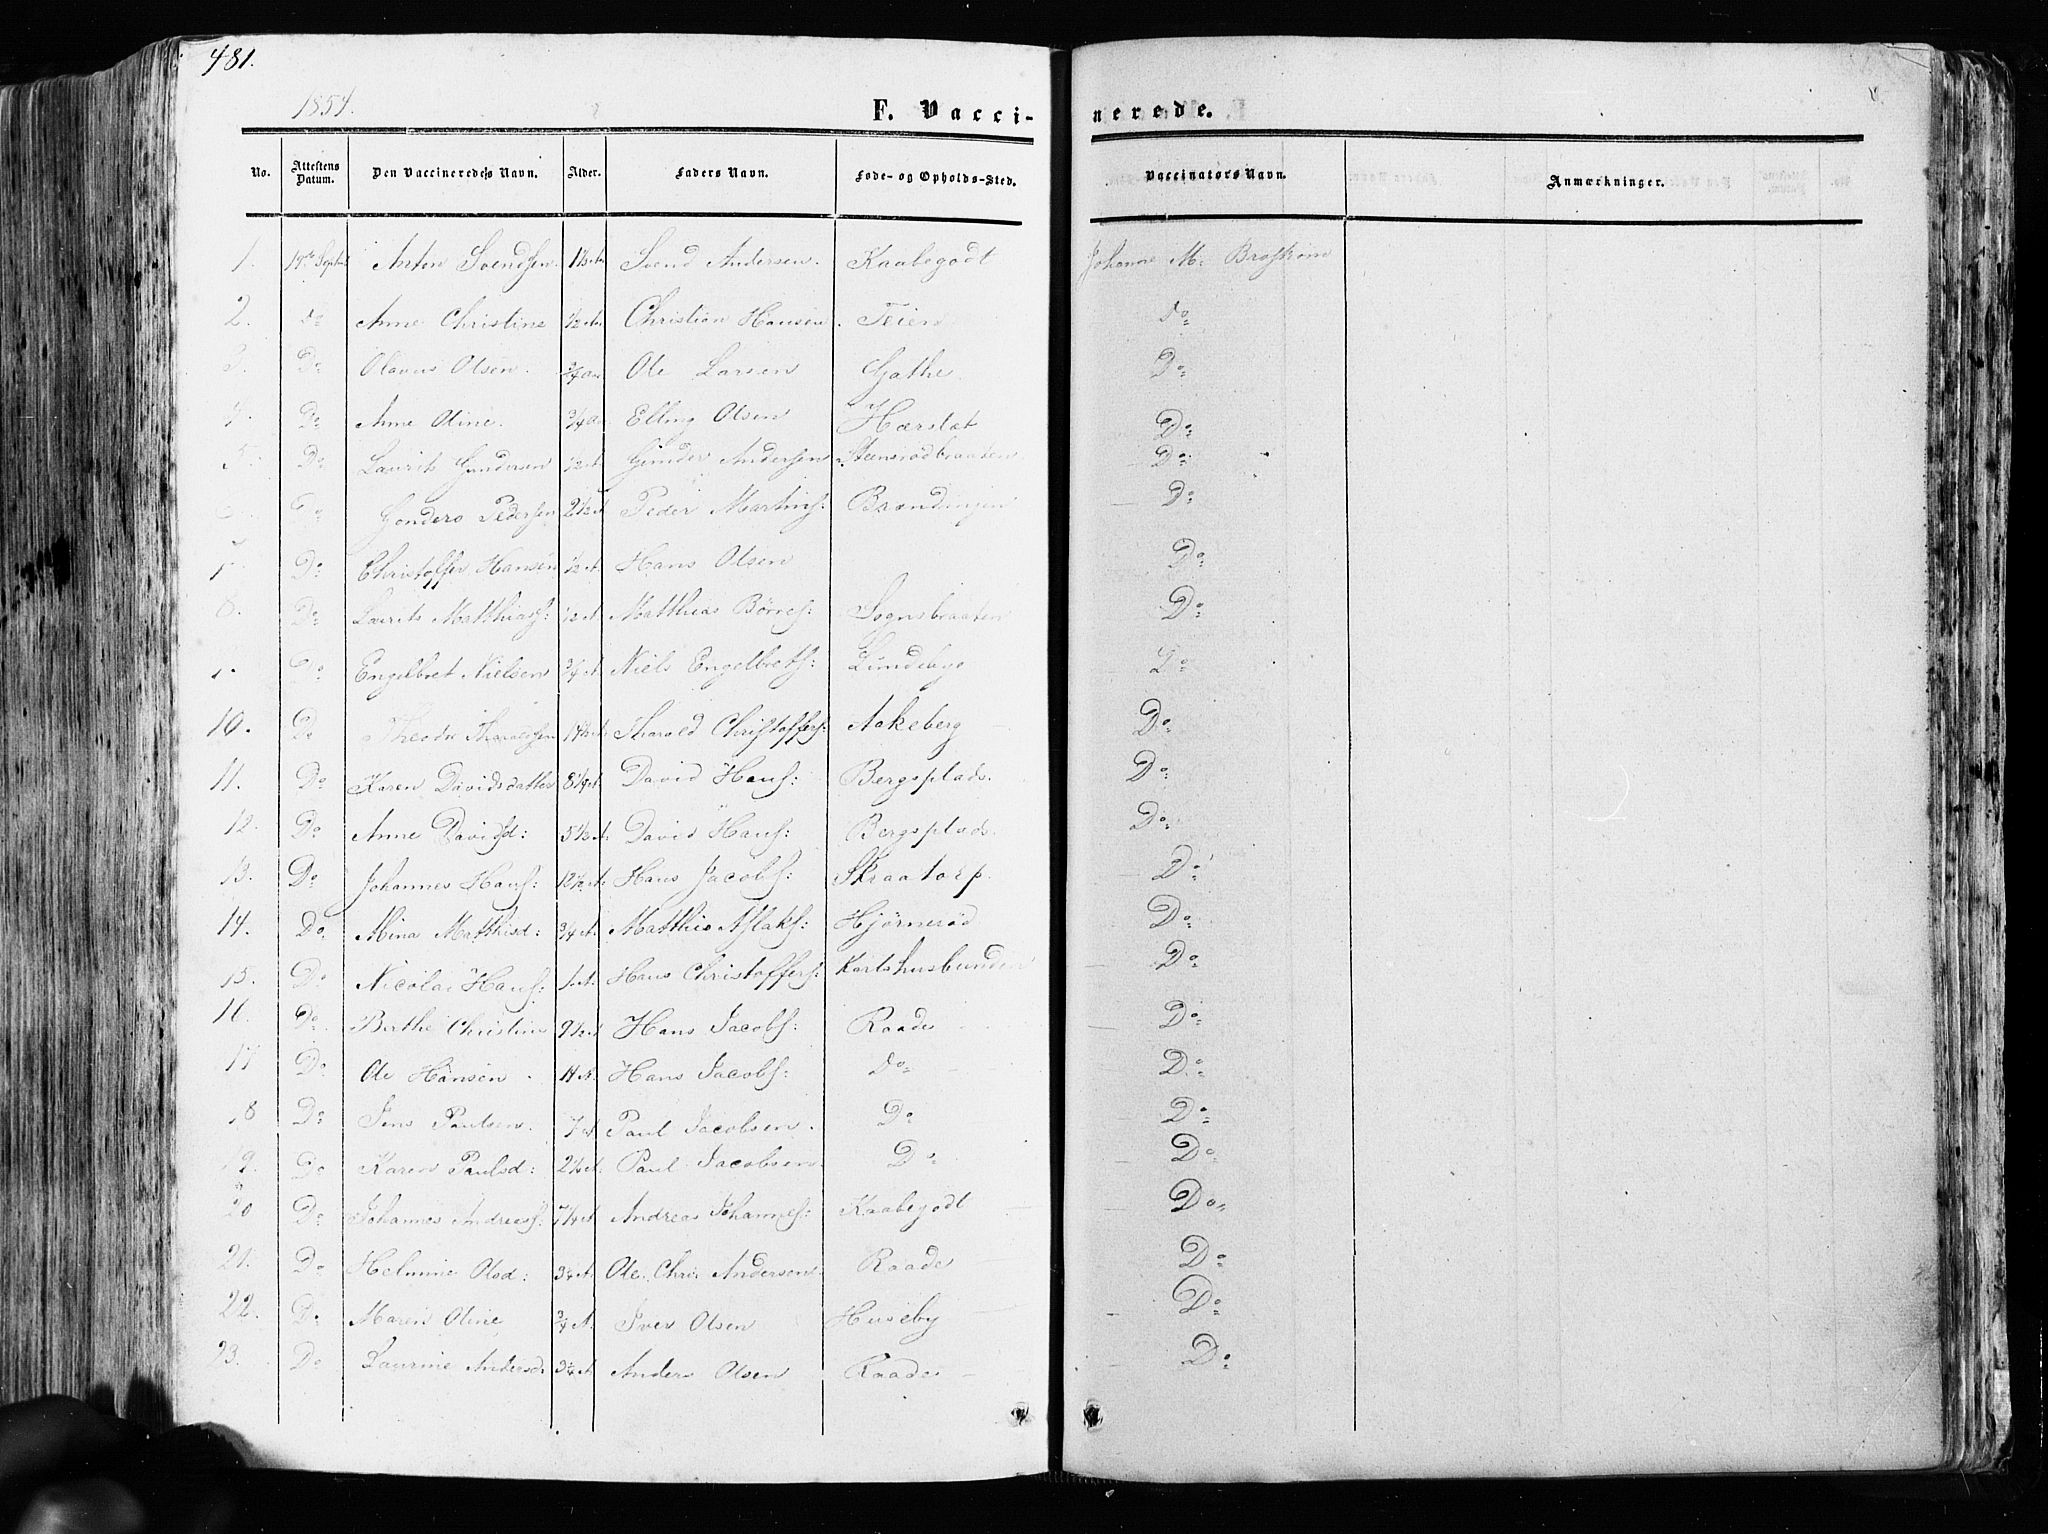 481.
1854.
F. Vacci-
nerede.
No. Attestens Datum. Den Vaccineredes Navn. Alder. Faders Navn. Føde- og Opholds-Sted. Vaccinators Navn. Anmærkninger.
1. Anton Svendsen. Svend Andersen. Kaabegodt Johanne M.
2. Do Anne Christine 1/2 Christian Hansen. Teien Do
3. Do Olavus Olsen. Ole Larsen Gathe. Do
4. Do Anne Oline. 3/4 Elling Olsen Hærslæt Do
5. Do Laurits Gundersen 1/2 A. Gunder Andersen Steensrødbraaten Do
6. Do Pedersen 2 1/2 A Peder Martins: Do
7. Do Christoffer Hansen 1/2 A. Hans Olsen Do
8. Do Laurits Matthias: 1/2 A Matthias Børres: Sognsbraaten Do
Do Engelbret Nielsen 3/4 A. Niels Engelbrets: Lundeby Do
10. Do Tharaldsen Tharald Christoffers: Aakeberg Do
11. Do Karen Davidsdatter David Hans: Bergsplads. Do
12. Do Anne Davidsd: 5 1/2 A. David Hans: Bergsplads. Do
13. Do Johannes Hans: 12 1/2 A: Hans Jacobs: Skraatorp. Do
14. Do Mina Matthisd: 3/4 A. Matthis Aslaks: Hjørnerød Do
15. Do Nicolai Hans: 1 A. Hans Christoffers: Karlshusbunden Do
16. Do Berthe Christine 9 1/2 A Hans Jacobs: Raade Do
17 Do Ole Hansen. Hans Jacobs: Do Do
18 Do Jens Paulsen. 7 A Paul Jacobsen. Do Do
19. Do Karen Paulsd: Paul Jacobsen. Do Do
20 Do Johannes Andreas: Andreas Johannes: Kaabegodt Do
21. Do Helmine Olsd: Ole Chr: Andersen Raade Do
22. Do Maren Oline 3/4 A. Iver Olsen Huseby Do
23. Do Laurine Andersd: Anders Olsen Raade Do